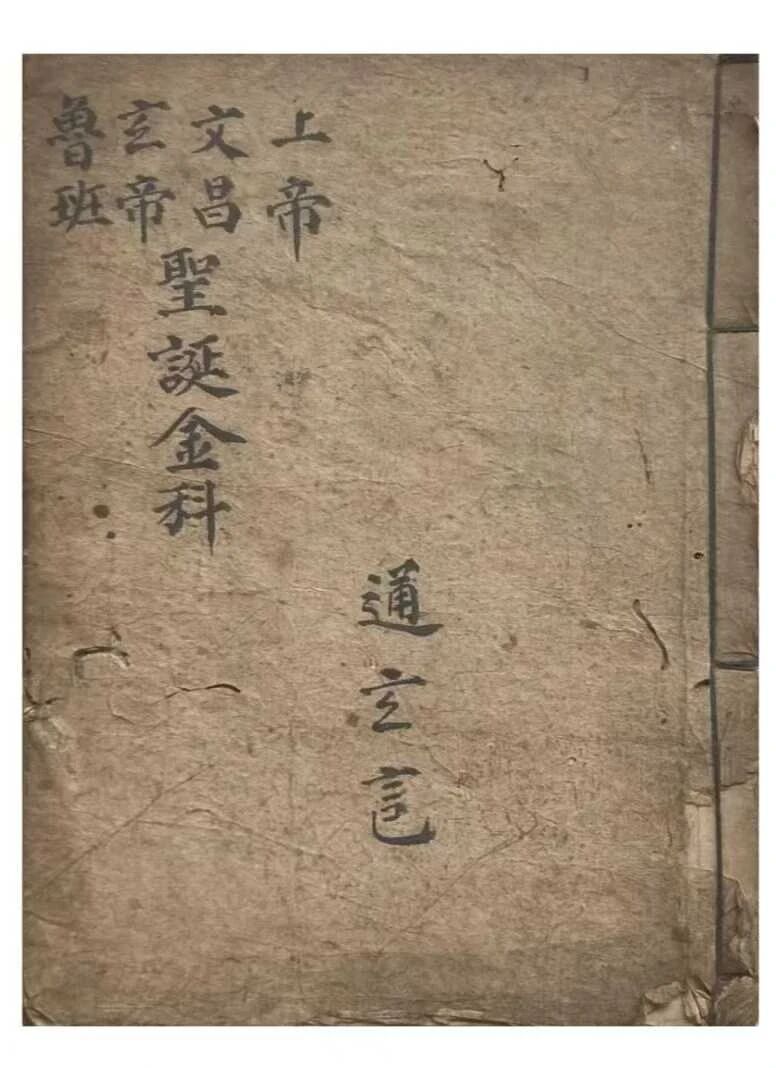 通玄
上帝
文昌
玄帝
魯班
聖誕金科